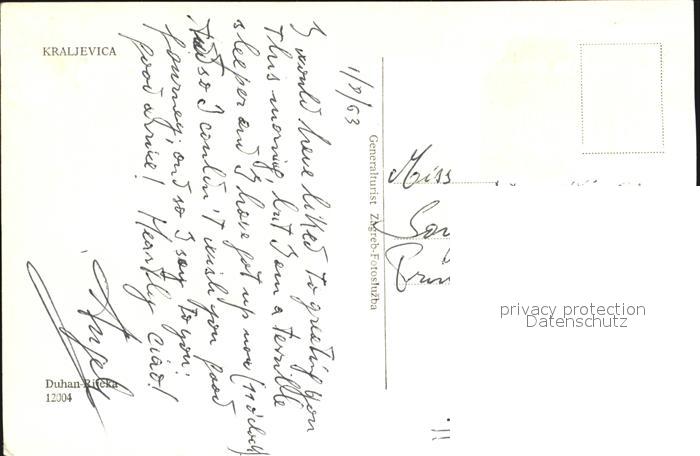 KRALJEVICA
1/9/63
I would have liked to greeting you
this morning, but I am a terrible
sleeper and I have got up now (11 o'clock)
And so I couldn't wish you good
journey; and so I say to you:
good arrive! Heartly ciao!
Generalturist Zagreb-Fotoslužba
Miss
Duhan-Rijeka
12004
privacy protection
Datenschutz